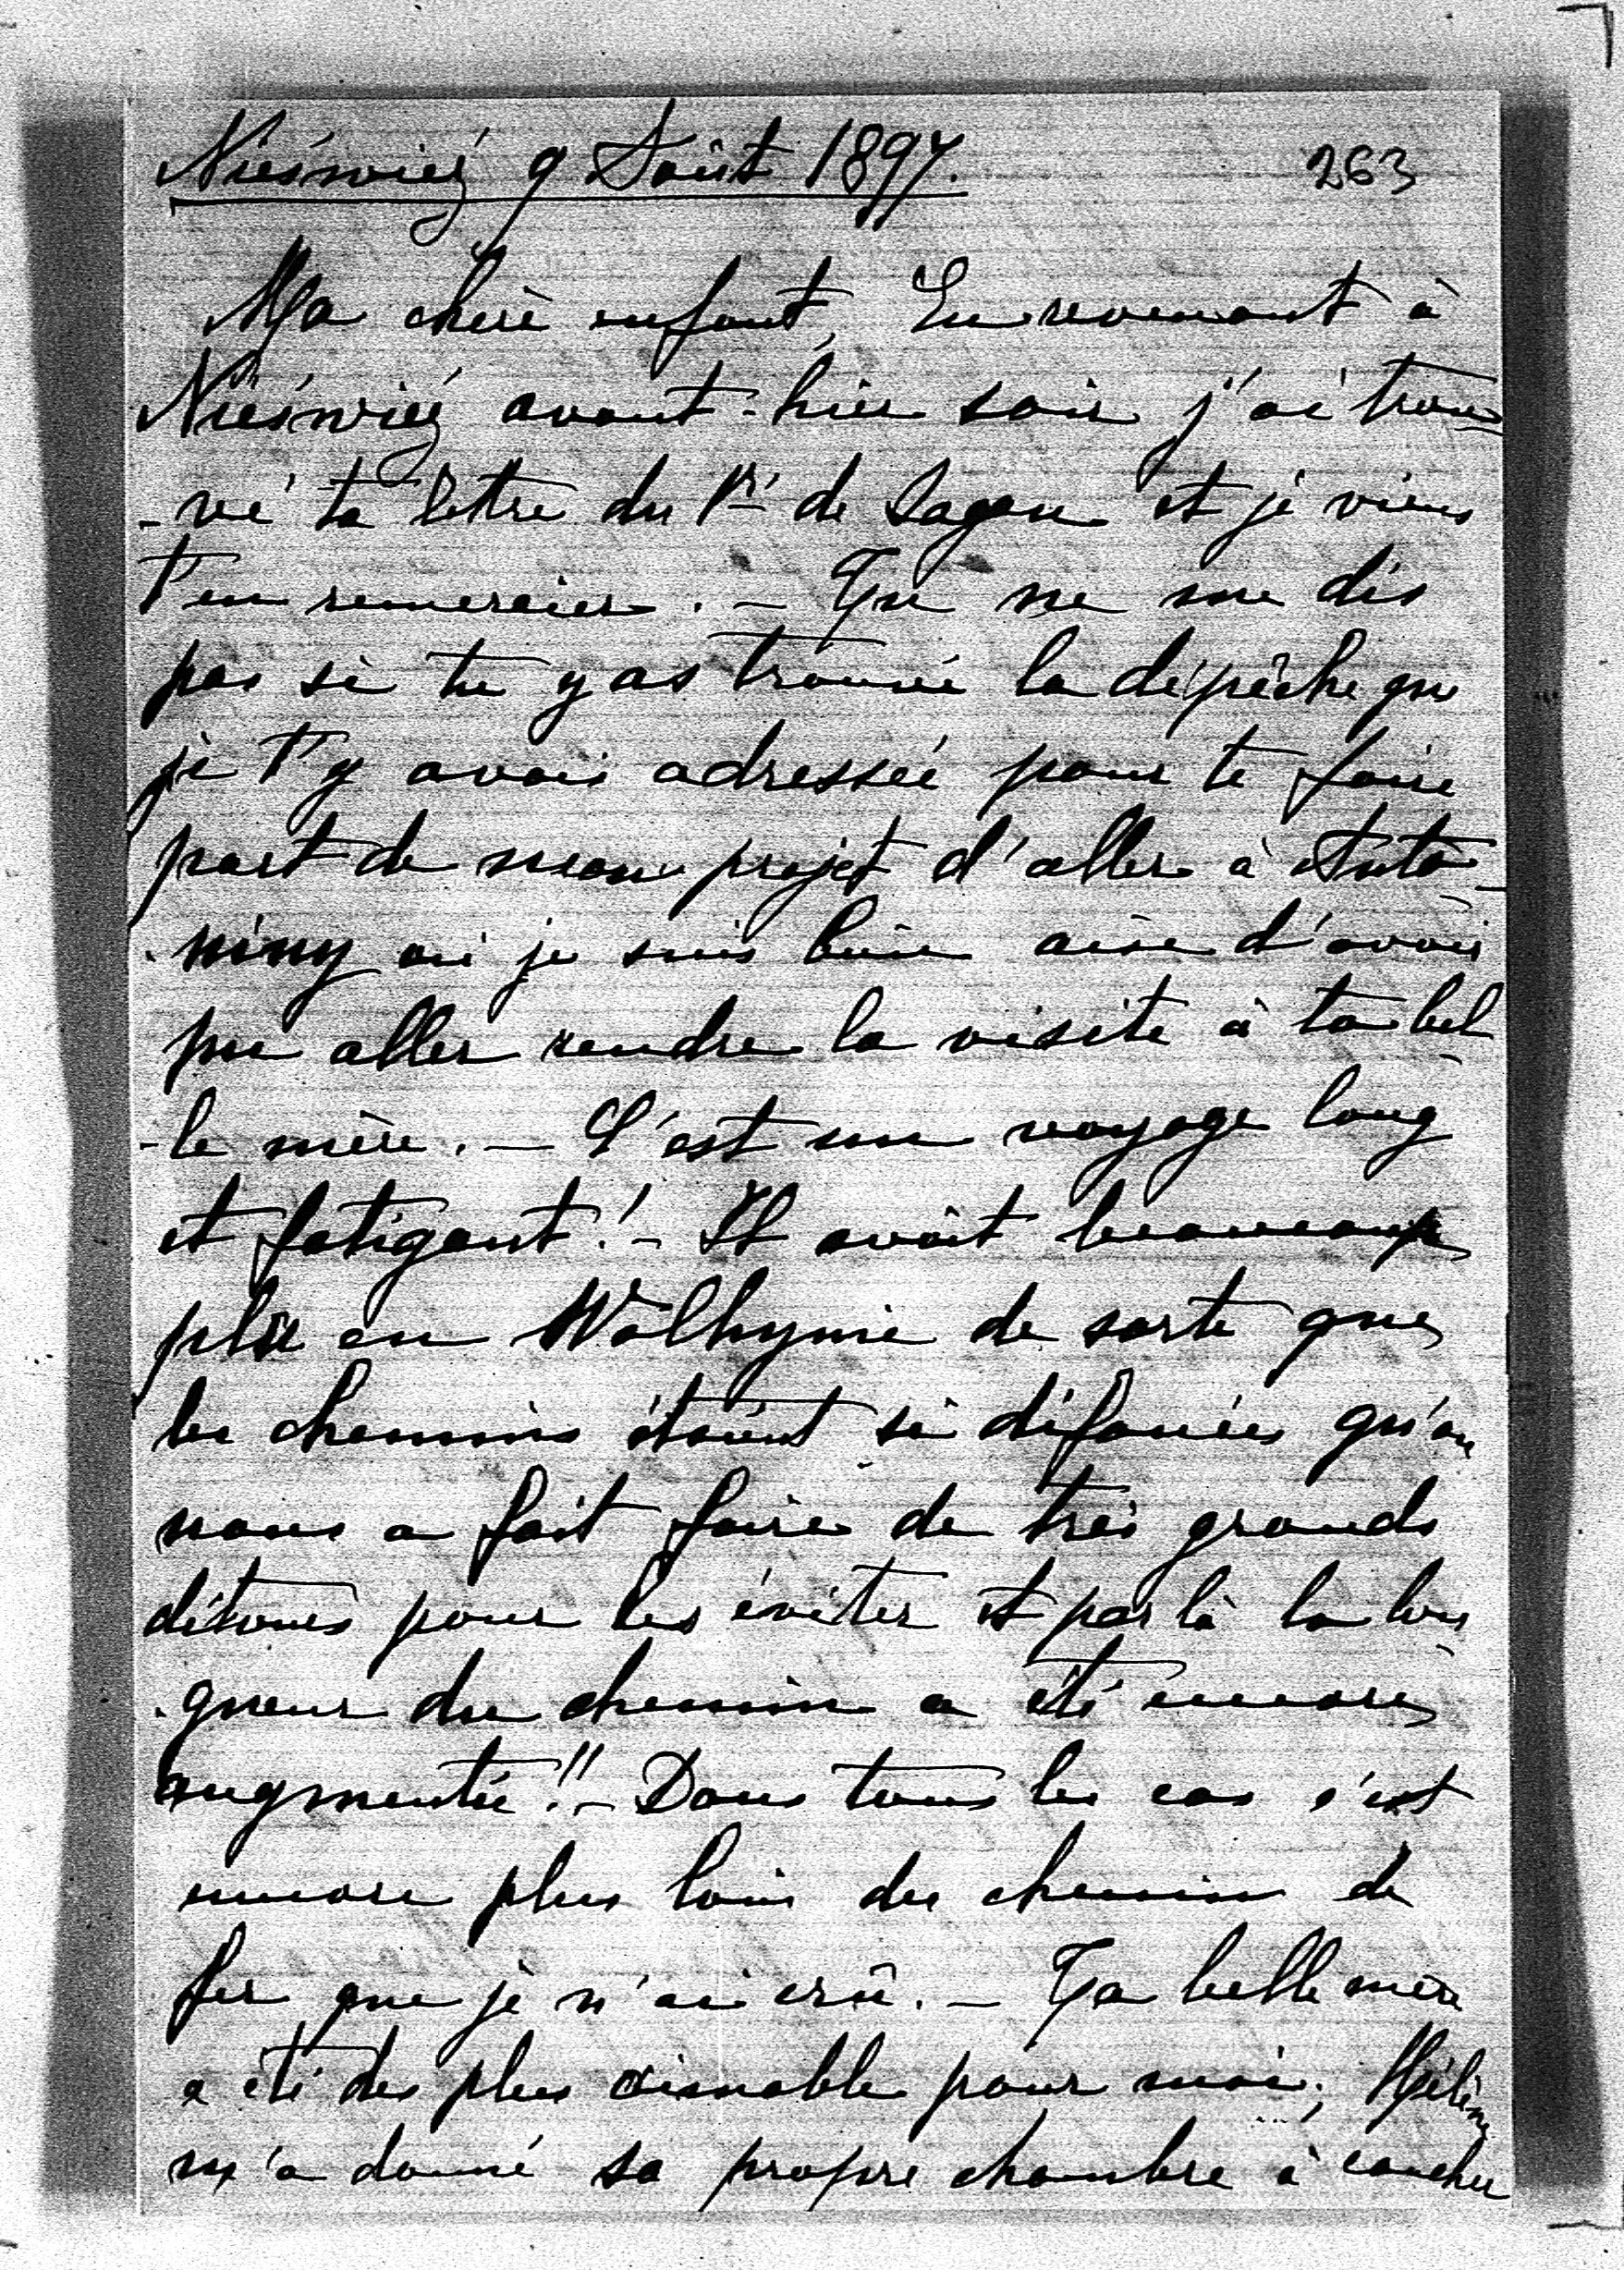 Nieśwież 9 Août 1897. 263
Ma chère enfant, En revenant à
Nieśwież avant-hier soir j'ai trou-
-vé ta lettre du 1er de Sagan et je viens
t'en remercier. — Tu ne me dis
pas si tu y as trouvé la dépêche que
je t'y avais adressée pour te faire
part de mon projet d'aller à Anto-
-niny où je suis bien aise d'avoir
pu aller rendre la visite à ta bel
-le mère. — C'est un voyage long
et fatigant! — Il avait beaucoup
plu en Wolhynie de sorte que
les chemins étaient si défoncés qu'on
nous a fait faire de très grands
détours pour les éviter et par là la lon
-gueur du chemin a été encore
augmentée!! — Dans tous les cas c'est
encore plus loin du chemin de
fer que je n'ai crû. — Ta belle mère
a été des plus aimable pour moi; Hélène
m'a donné sa propre chambre à coucher